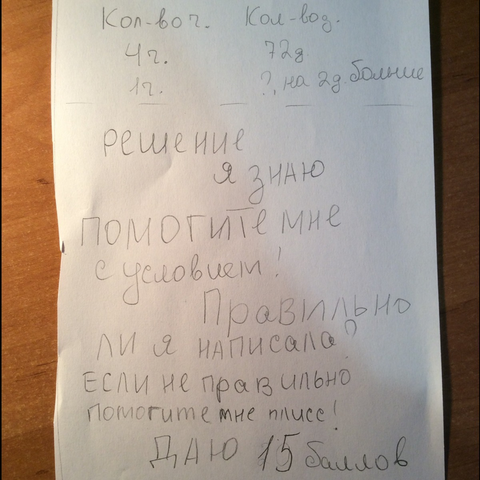 Кол-во ч. Кол-во д.
4ч. 72д
1ч. ?, на 2д. больше
РЕШЕНИЕ
Я ЗНАЮ
ПОМОГИТЕ МНЕ
с условием!
Правильно
ли я написала?
Если не правильно
помогите мне плисс!
Даю 15 баллов